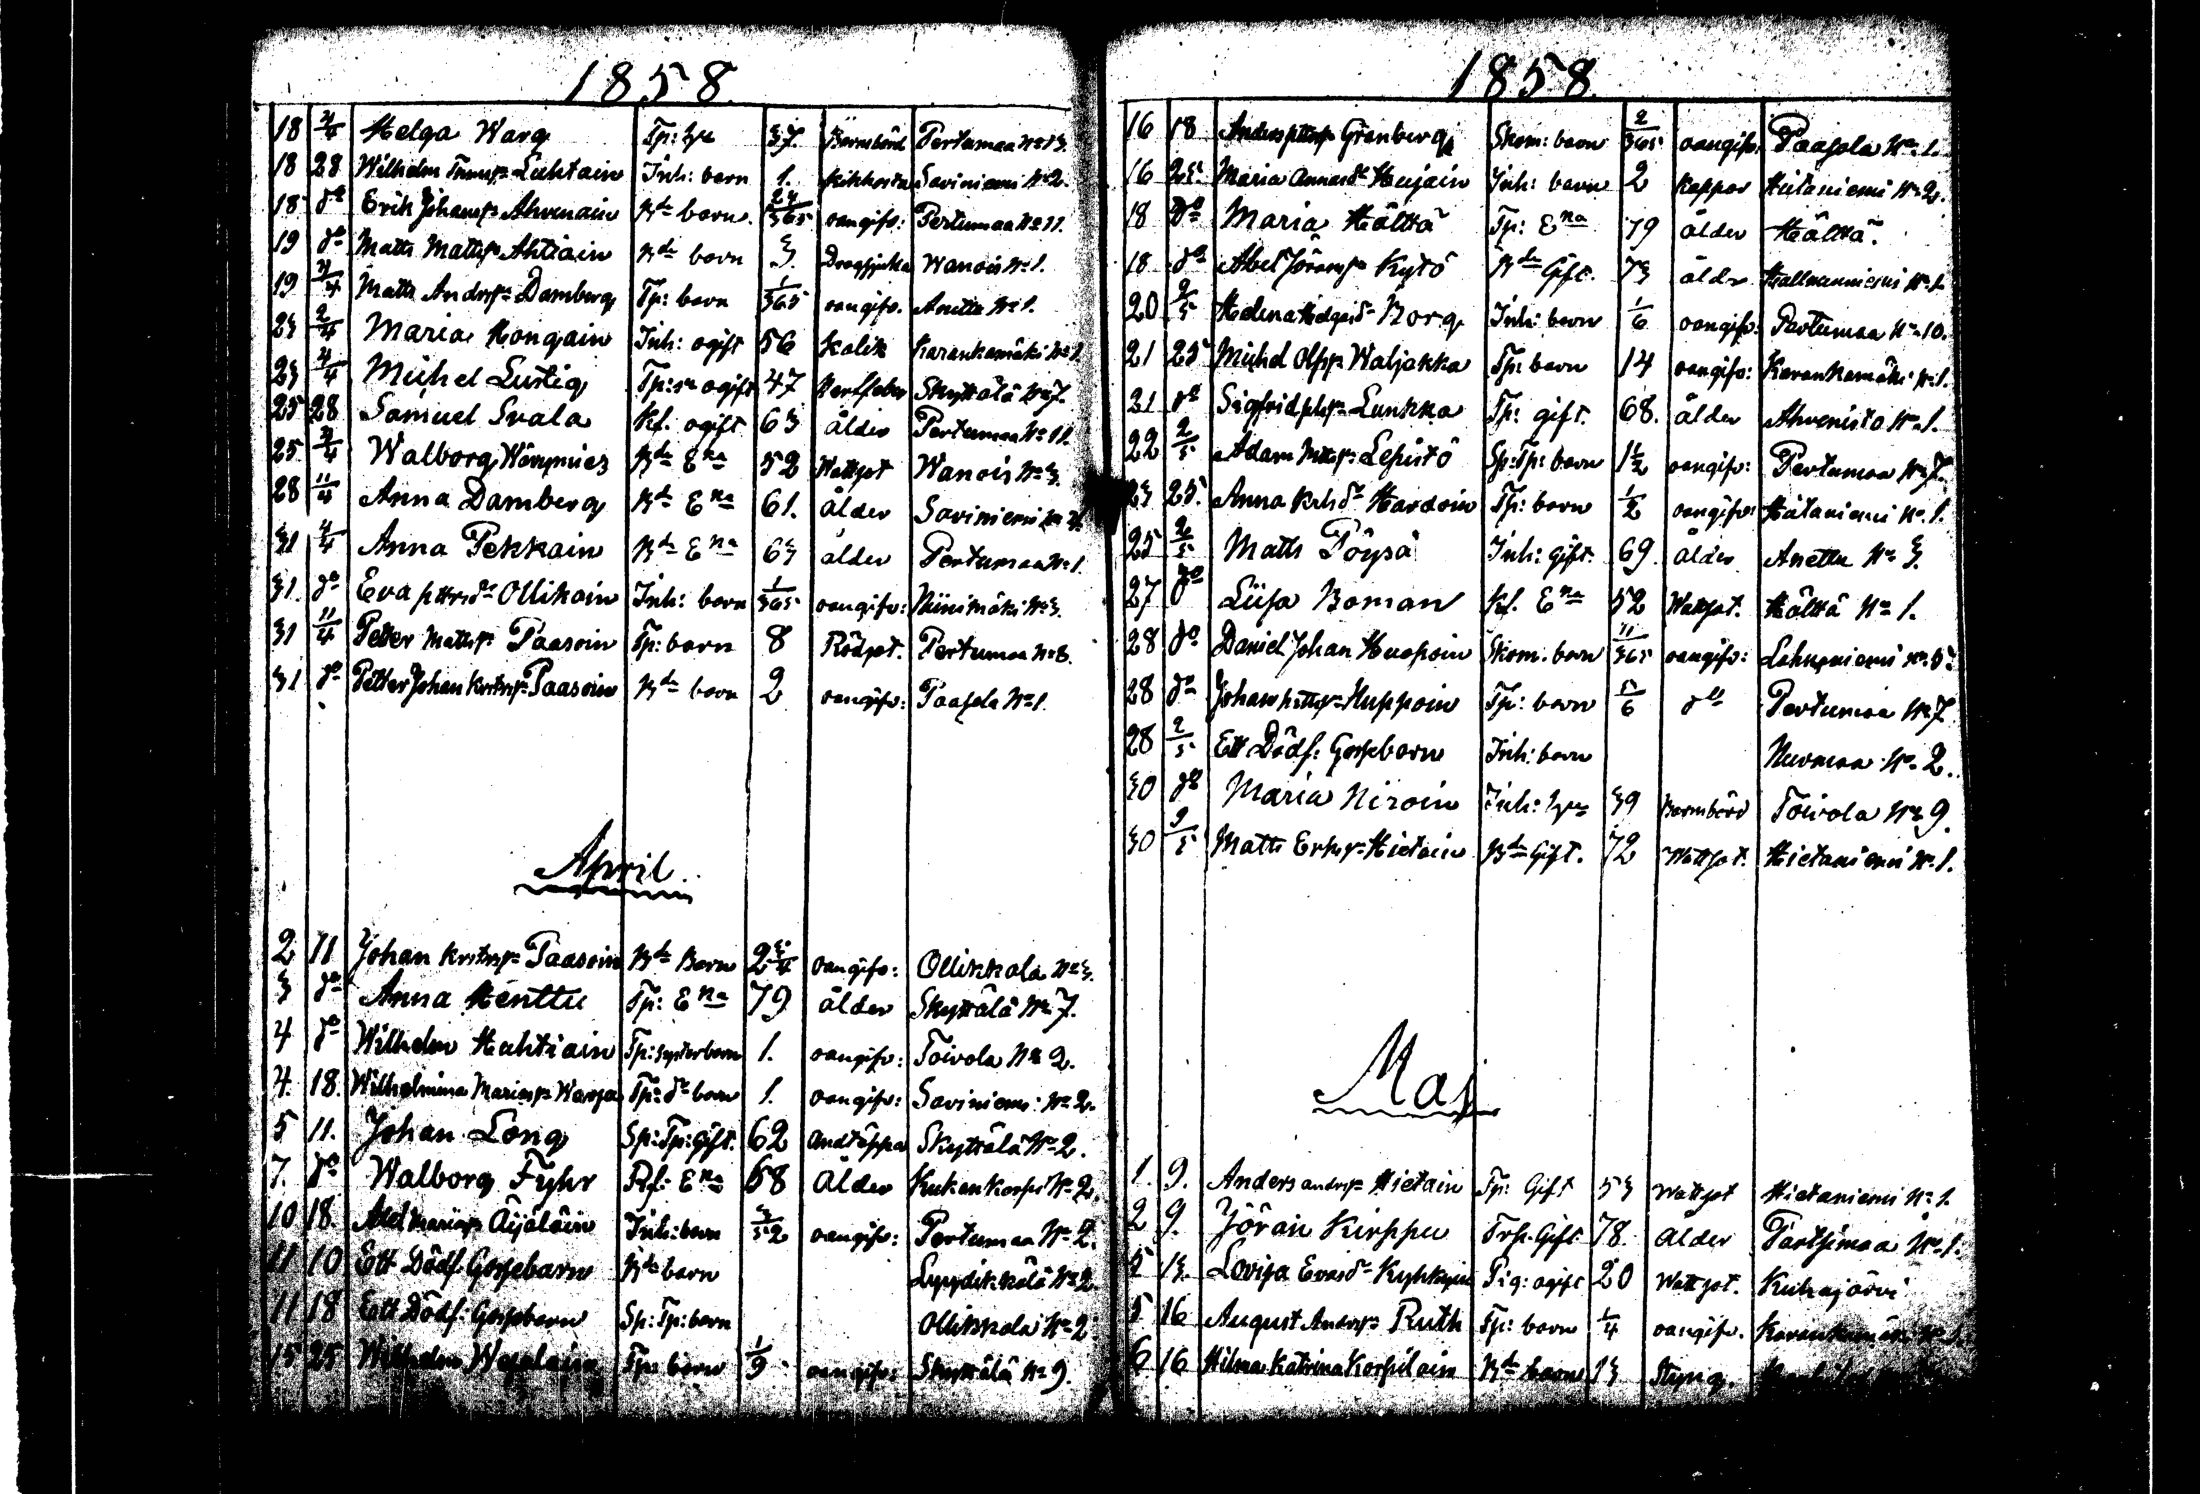 1858.
18 4/4 Helga Warg Tp: hu 37. Barnsbörd Pertumaa No 13.
18 28 Wilhelm Luhtain Inh: barn 1. kikhosta Saviniemi No 2.
18 do Erik Johansso Ahvenain Nde barn. 24/365 oangifv: Pertumaa No 11.
19 do Matts Mattsso Ahtiain Nde barn 3. Dragsjuka Wanois No 1.
19 4/4 Matts Andersso Damberg Tp: barn 1/365 oangifv. Anetta No 1.
23 2/4 Maria Hongain Inh: ogift 56 Kolik Karankamäki No 1.
23 4/4 Michel Lustig Tp: sn ogift 47 Nerffeber Skyttälä No 7.
25 28 Samuel Svala Kf. ogift 63 ålder Pertumaa No 11.
25 4/4 Walborg Nde Ena 52 Wattsot Wanois No 3.
28 11/4 Anna Damberg Nde Ena 61. ålder Saviniemi No
31 4/4 Anna Pekkain Nde Ena 63 ålder Pertumaa No 1.
31. do Eva pttrsdr Ollikain Inh: barn 1/365 oangifv: Niinimäki No 3.
31 11/4 Petter Mattsso Paasoin Tp: barn 8 Rödsot. Pertumaa No 8.
31 do Petter Johan Kristsso Paasoin Nde barn 2 oangifv: Paasola No 1.
April
2 11 Johan Kristsso Paasoin Nde Barn 2 3/4 oangifv: Ollikkala No 3.
3 do Anna Henttu Tp: Ena 79 ålder Skyttälä No 7.
4 do Wilhelm Huhtiain Tp: systerbarn 1. oangifv: Toivola No 2.
4. 18. Wilhelmina Mariasso Tp: dr barn 1. oangifv: Saviniemi: No 2.
5 11. Johan Long Sp: Tp: gift. 62 andtäppa Skyttälä No 2.
7. do Walborg Fyhr Rf: Ena 58 Ålder Kukonkorpi No 2.
10 18. Abel Mariasso Äijäläin Inh: barn 3/52 oangifv: Pertumaa No 2.
11 10 Ett Dödf. Gossebarn Nde barn Lyydikkälä No 2.
11 18 Ett Dödf: Gossebarn Sp: Tp: barn Ollikkala No 2.
15 25 Wilhelm Tp: barn 1/9 oangifv: Skyttälä No 9.
1858.
16 18 Anders pttrsso Grenberg Skom: barn 2/365 oangifv: Paasola No 1.
16 25. Maria Annasdr Hujain Inh: barn 2 koppor Hietaniemi No 2.
18 do Maria Hölttä Tp: Ena 79 ålder Hölttä.
18 do Abel Jöransso Kytö Nde Gift. 73 ålder Hallmanniemi No 1.
20 2/5 Helena Helgasdr Norg Inh: barn 1/6 oangifv: Pertumaa No 10.
21 25 Michel Olsso Waljakka Tp: barn 14 oangifv: Karankamäki No 1.
21 do Sigfrid Lunkka Tp: gift. 68. ålder Ahvenisto No 1.
22 2/5 Adam Mattsso Lepistö Sp: Tp: barn 1 1/2 oangifv: Pertumaa No 7.
23 25. Anna Krlsdr Hardoin Tp: barn 1/2 oangifv: Hietaniemi No 1.
25 2/5 Matts Pöysä Inh: Gift. 69. ålder Anetta No 3.
27 do Liisa Boman Kf. Ena 52 Wattsot. Hölttä No 1.
28 do Daniel Johan Huopoin Skom. barn 11/365 oangifv: Lahnaniemi No 5.
28 do Johan pttrsso Huppoin Tp: barn 5/6 do Pertumaa No 7
28 2/5 Ett Dödf: Gossebarn Inh: barn Nurmaa No 2.
30 do Maria Niroin Inh: hu 39 Barnsbörd Toivola No 9.
30 9/5 Matts Ersso Hietain Nde Gift. 72 Wattsot. Hietaniemi No 1.
Maj
1. 9. Anders Andersso Hietain Tp: Gift 53 Wattsot Hietaniemi No 1.
2 9. Jöran Kirppu Trp. Gift 78. Ålder Partsimaa No 1.
5 13. Lovisa Evasdr Pig: ogift 20 Wattsot. Kuhajärvi
5 16 August Andersso Ruth Tp: barn 1/4 oangifv. Karankamäki No 1.
6 16 Hilma Katrina Korpilain Nde barn 13 Styng.